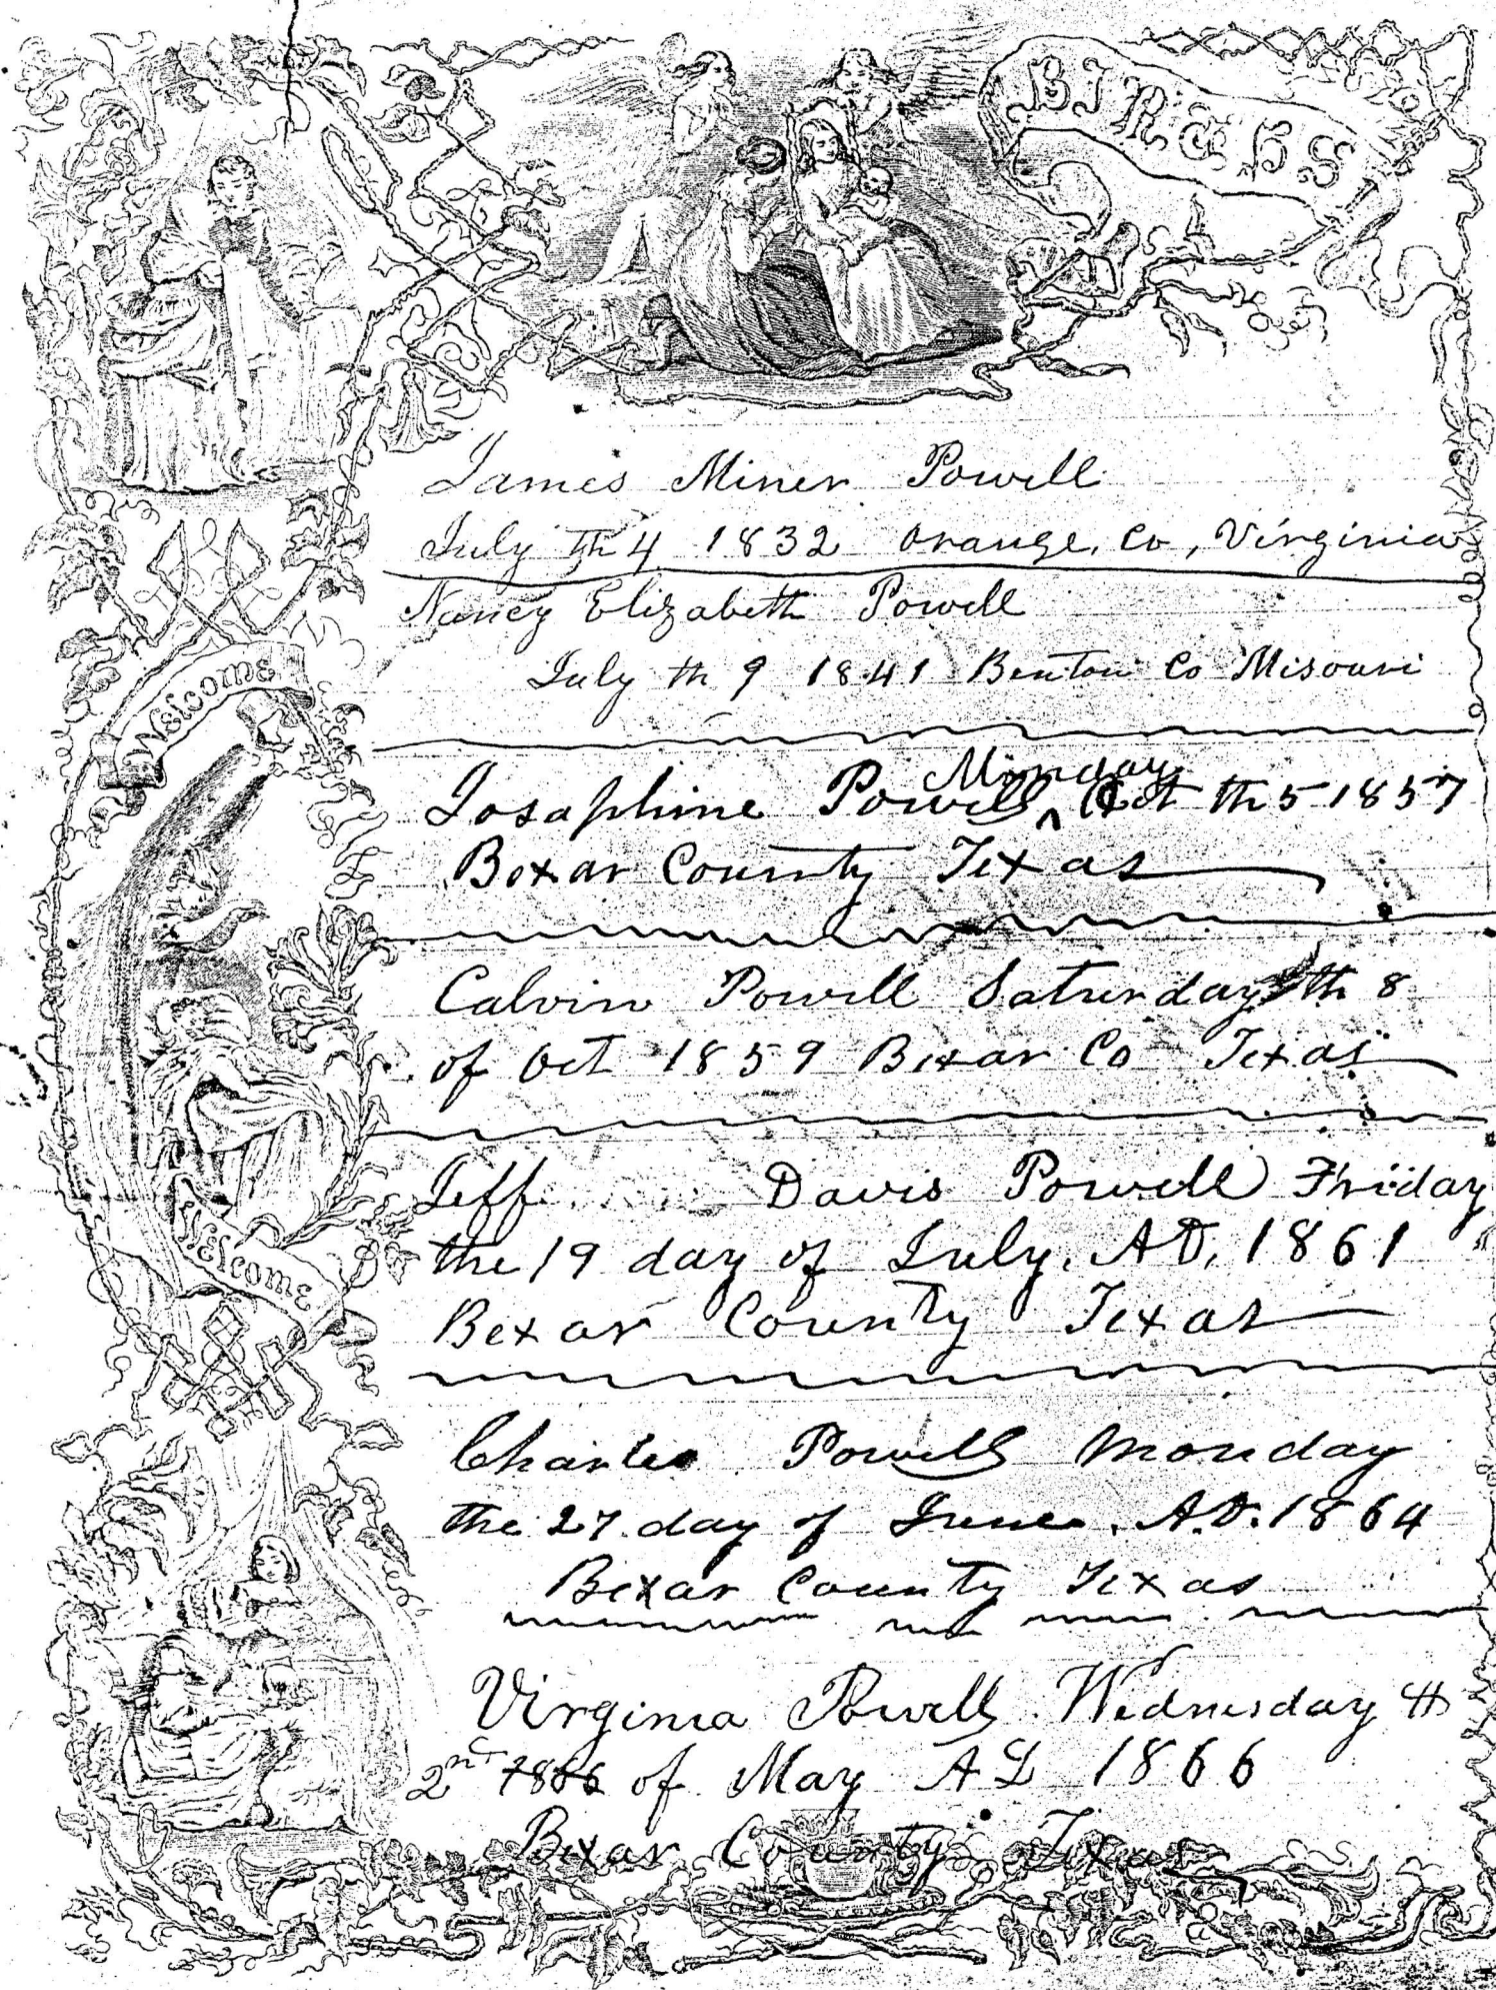 BIRTHS
James Miner Powell
July th 4 1832 Orange, Co, Virginia
Nancy Elizabeth Powell
July th 9 1841 Benton Co Misouri
Monday
Josaphine Powell ^ Oct th 5 1857
Bexar County Texas
Calvin Powell Saturday th 8
of Oct 1859 Bexar Co Texas
Jeff Davis Powell Friday
the 19 day of July. A.D. 1861
Bexar County Texas
Charles Powell Monday
the 27 day of June. A.D. 1864
Bexar County Texas
Virginia Powell Wednesday th
2nd 1866 of May AD 1866
Bexar County Texas
Welcome
Welcome